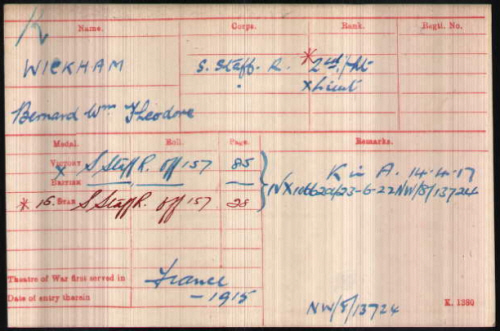 K
Name. Corps. Rank. Regtl. No.
WICKHAM S. Staff. R. *2nd/Lt
" X Lieut
Bernard Wm Theodore
Medal. Roll. Page. Remarks.
X VICTORY S Staff R. Off 157 85 K in A. 14-4-17
BRITISH NW/5/13724
* 15 STAR S Staff R. Off 157 28
Theatre of War first served in France
Date of entry therein - 1915
NW/5/13724 K. 1380